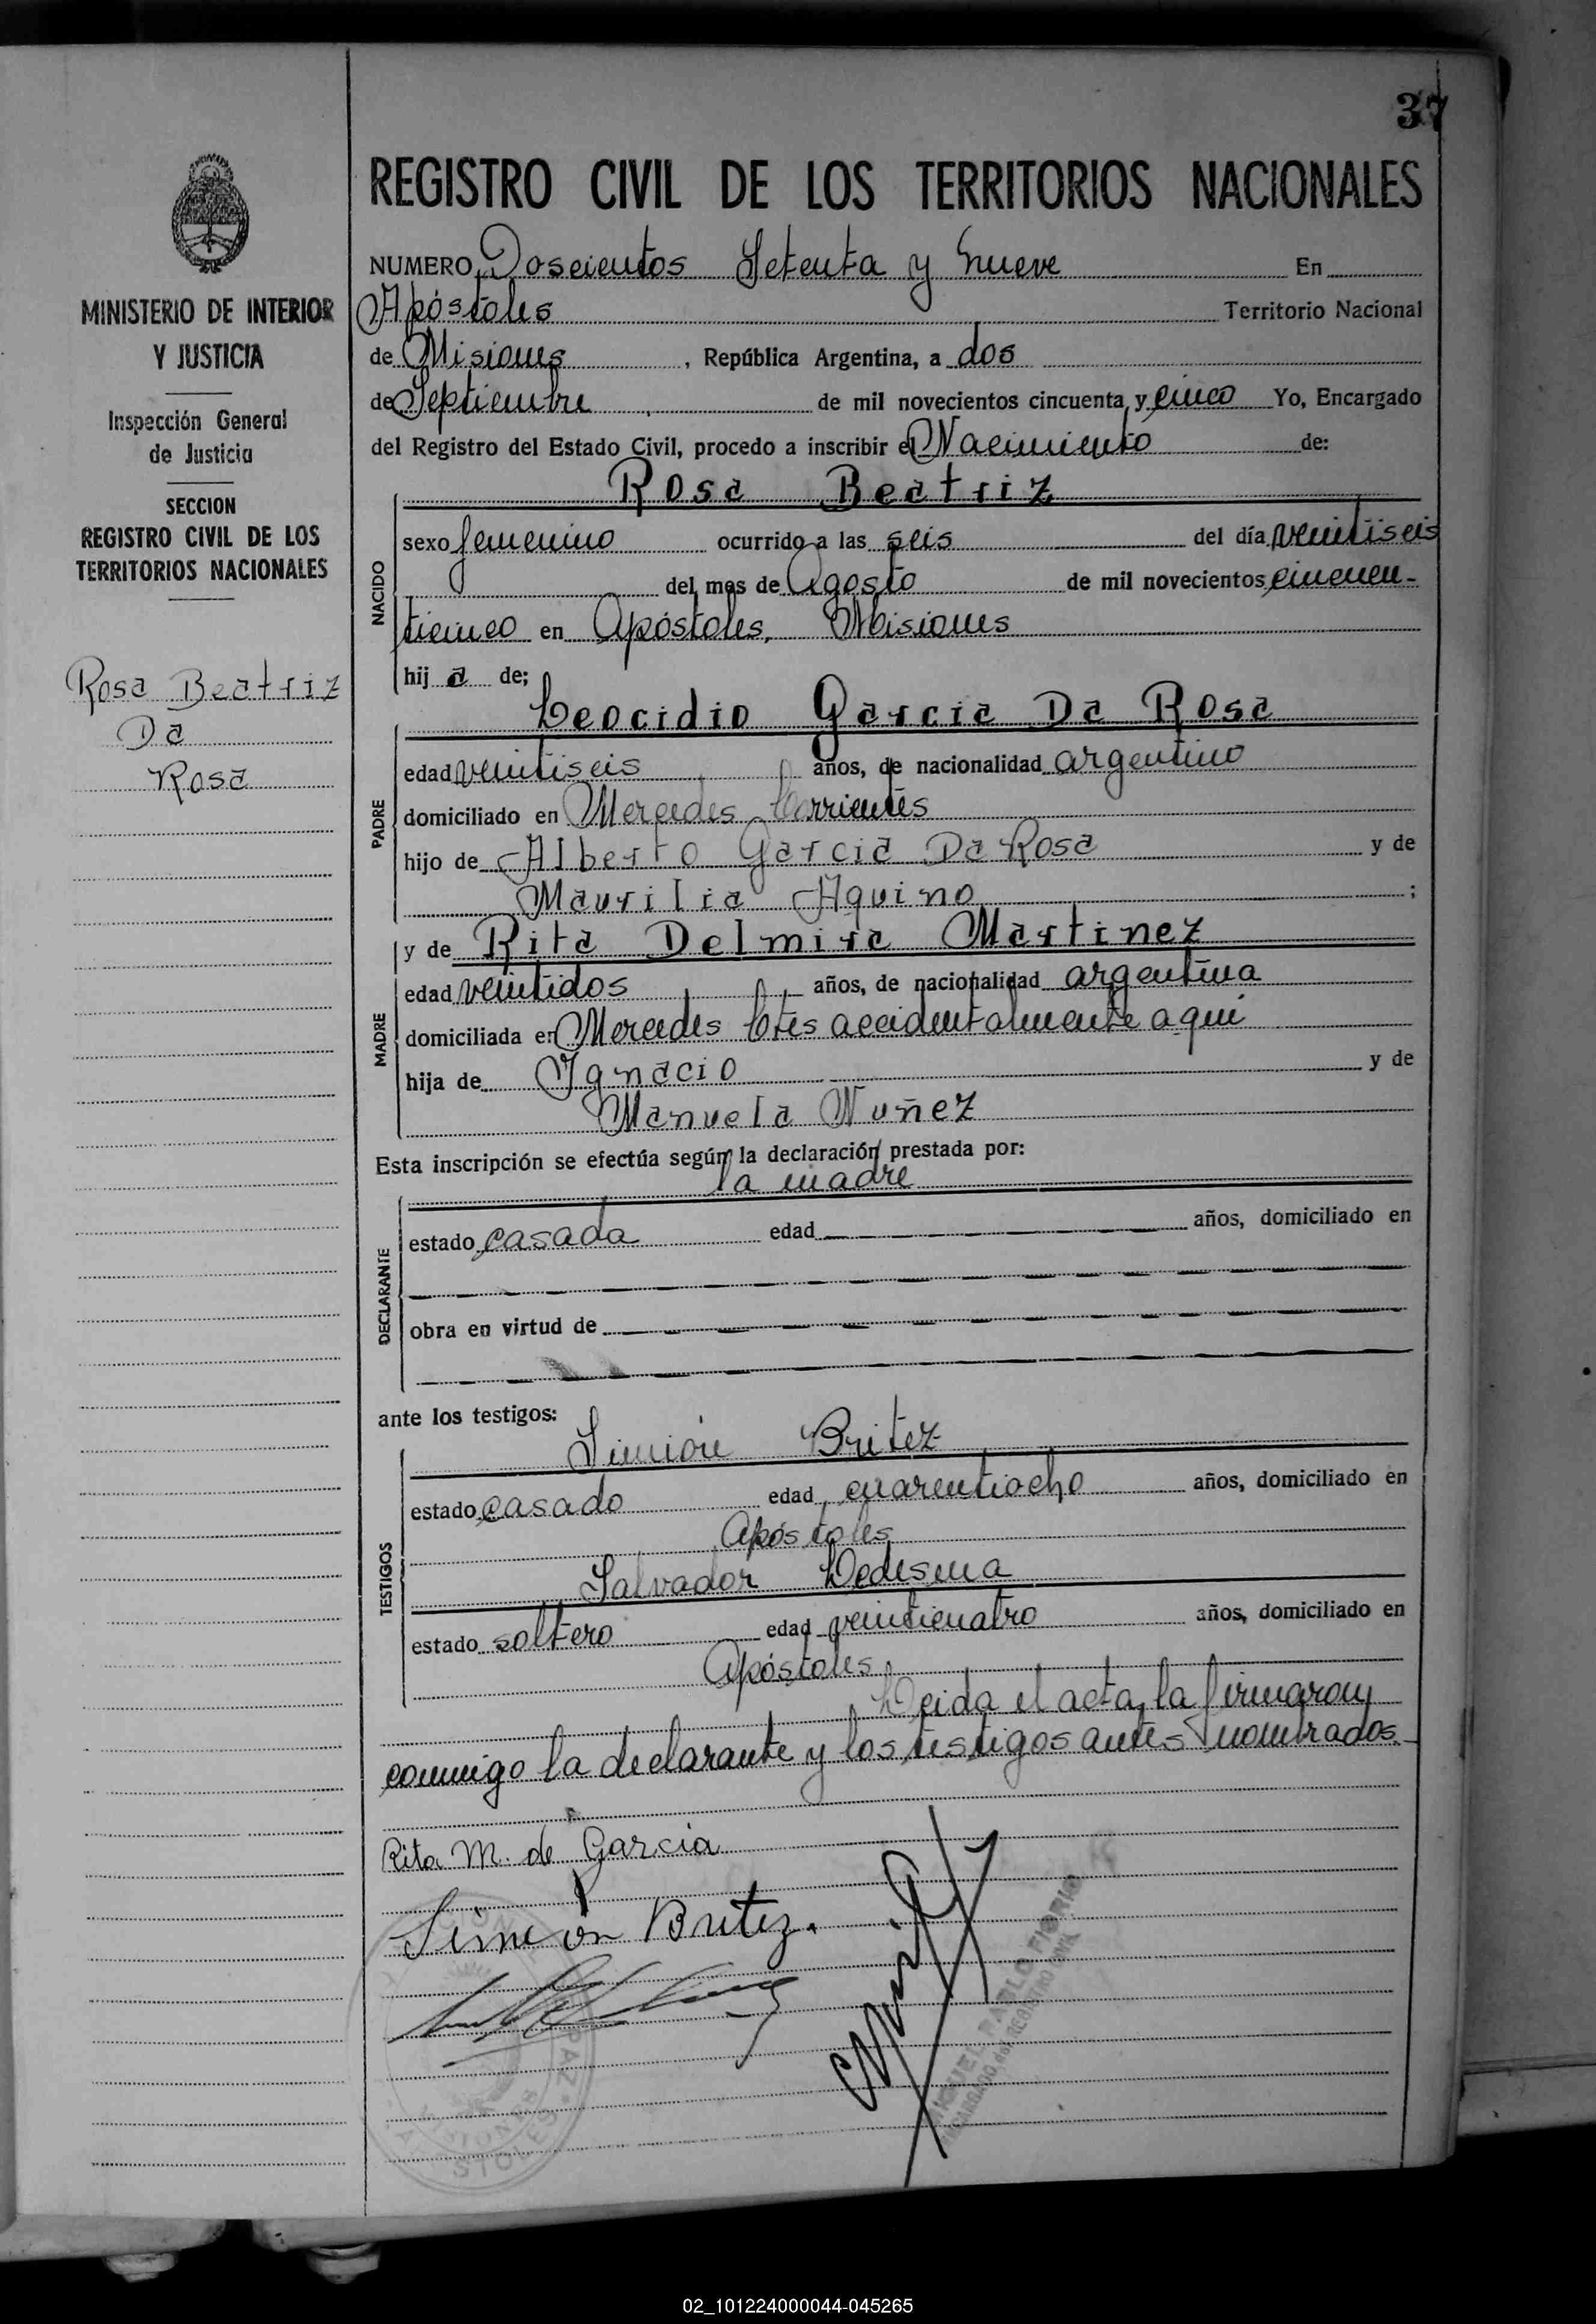 37
REGISTRO CIVIL DE LOS TERRITORIOS NACIONALES
MINISTERIO DE INTERIOR
Y JUSTICIA
Inspección General
de Justicia
SECCION
REGISTRO CIVIL DE LOS
TERRITORIOS NACIONALES
Rosa Beatriz
Da
Rosa
NUMERO Doscientos Setenta y nueve En
Apóstoles Territorio Nacional
de Misiones, República Argentina, a dos
de Septiembre de mil novecientos cincuenta y cinco Yo, Encargado
del Registro del Estado Civil, procedo a inscribir el Nacimiento de:
Rosa Beatriz
NACIDO
sexo femenino ocurrido a las seis del día veintiseis
del mes de Agosto de mil novecientos cincuen-
ticinco en Apóstoles, Misiones
hija de;
Leocidio Garcia Da Rosa
PADRE
edad veintiseis años, de nacionalidad argentino
domiciliado en Mercedes Corrientes
hijo de Alberto Garcia Da Rosa y de
Maurilia Aquino ;
y de Rita Delmira Martinez
MADRE
edad veintidos años, de nacionalidad argentina
domiciliada en Mercedes Ctes accidentalmente aqui
hija de Ignacio y de
Manuela Nuñez
Esta inscripción se efectúa según la declaración prestada por:
la madre
DECLARANTE
estado casada edad años, domiciliado en
obra en virtud de
ante los testigos:
Simión Britez
TESTIGOS
estado casado edad cuarentiocho años, domiciliado en
Apóstoles
Salvador Ledesma
estado soltero edad veinticuatro años, domiciliado en
Apóstoles
Leida el acta, la firmaron
conmigo la declarante y los testigos antes nombrados.
Rita M. de Garcia
Simeón Britez.
MIGUEL PABLO FIORIO
ENCARGADO del REGISTRO CIVIL
02_101224000044-045265